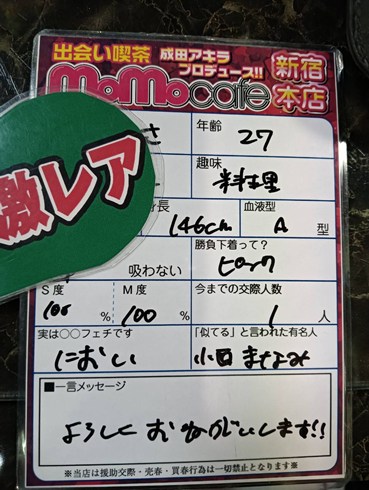 出会い喫茶 成田アキラ プロデュース!! 新宿本店
MoMocafe
激レア
さ 年齢 27
趣味 料理
身長 146cm 血液型 A 型
吸わない 勝負下着って? ピンク
S度 100 % M度 100 % 今までの交際人数 1 人
実は○○フェチです においい 「似てる」と言われた有名人
■一言メッセージ
よろしくおねがいします!!
※当店は援助交際・売春・買春行為は一切禁止となります※